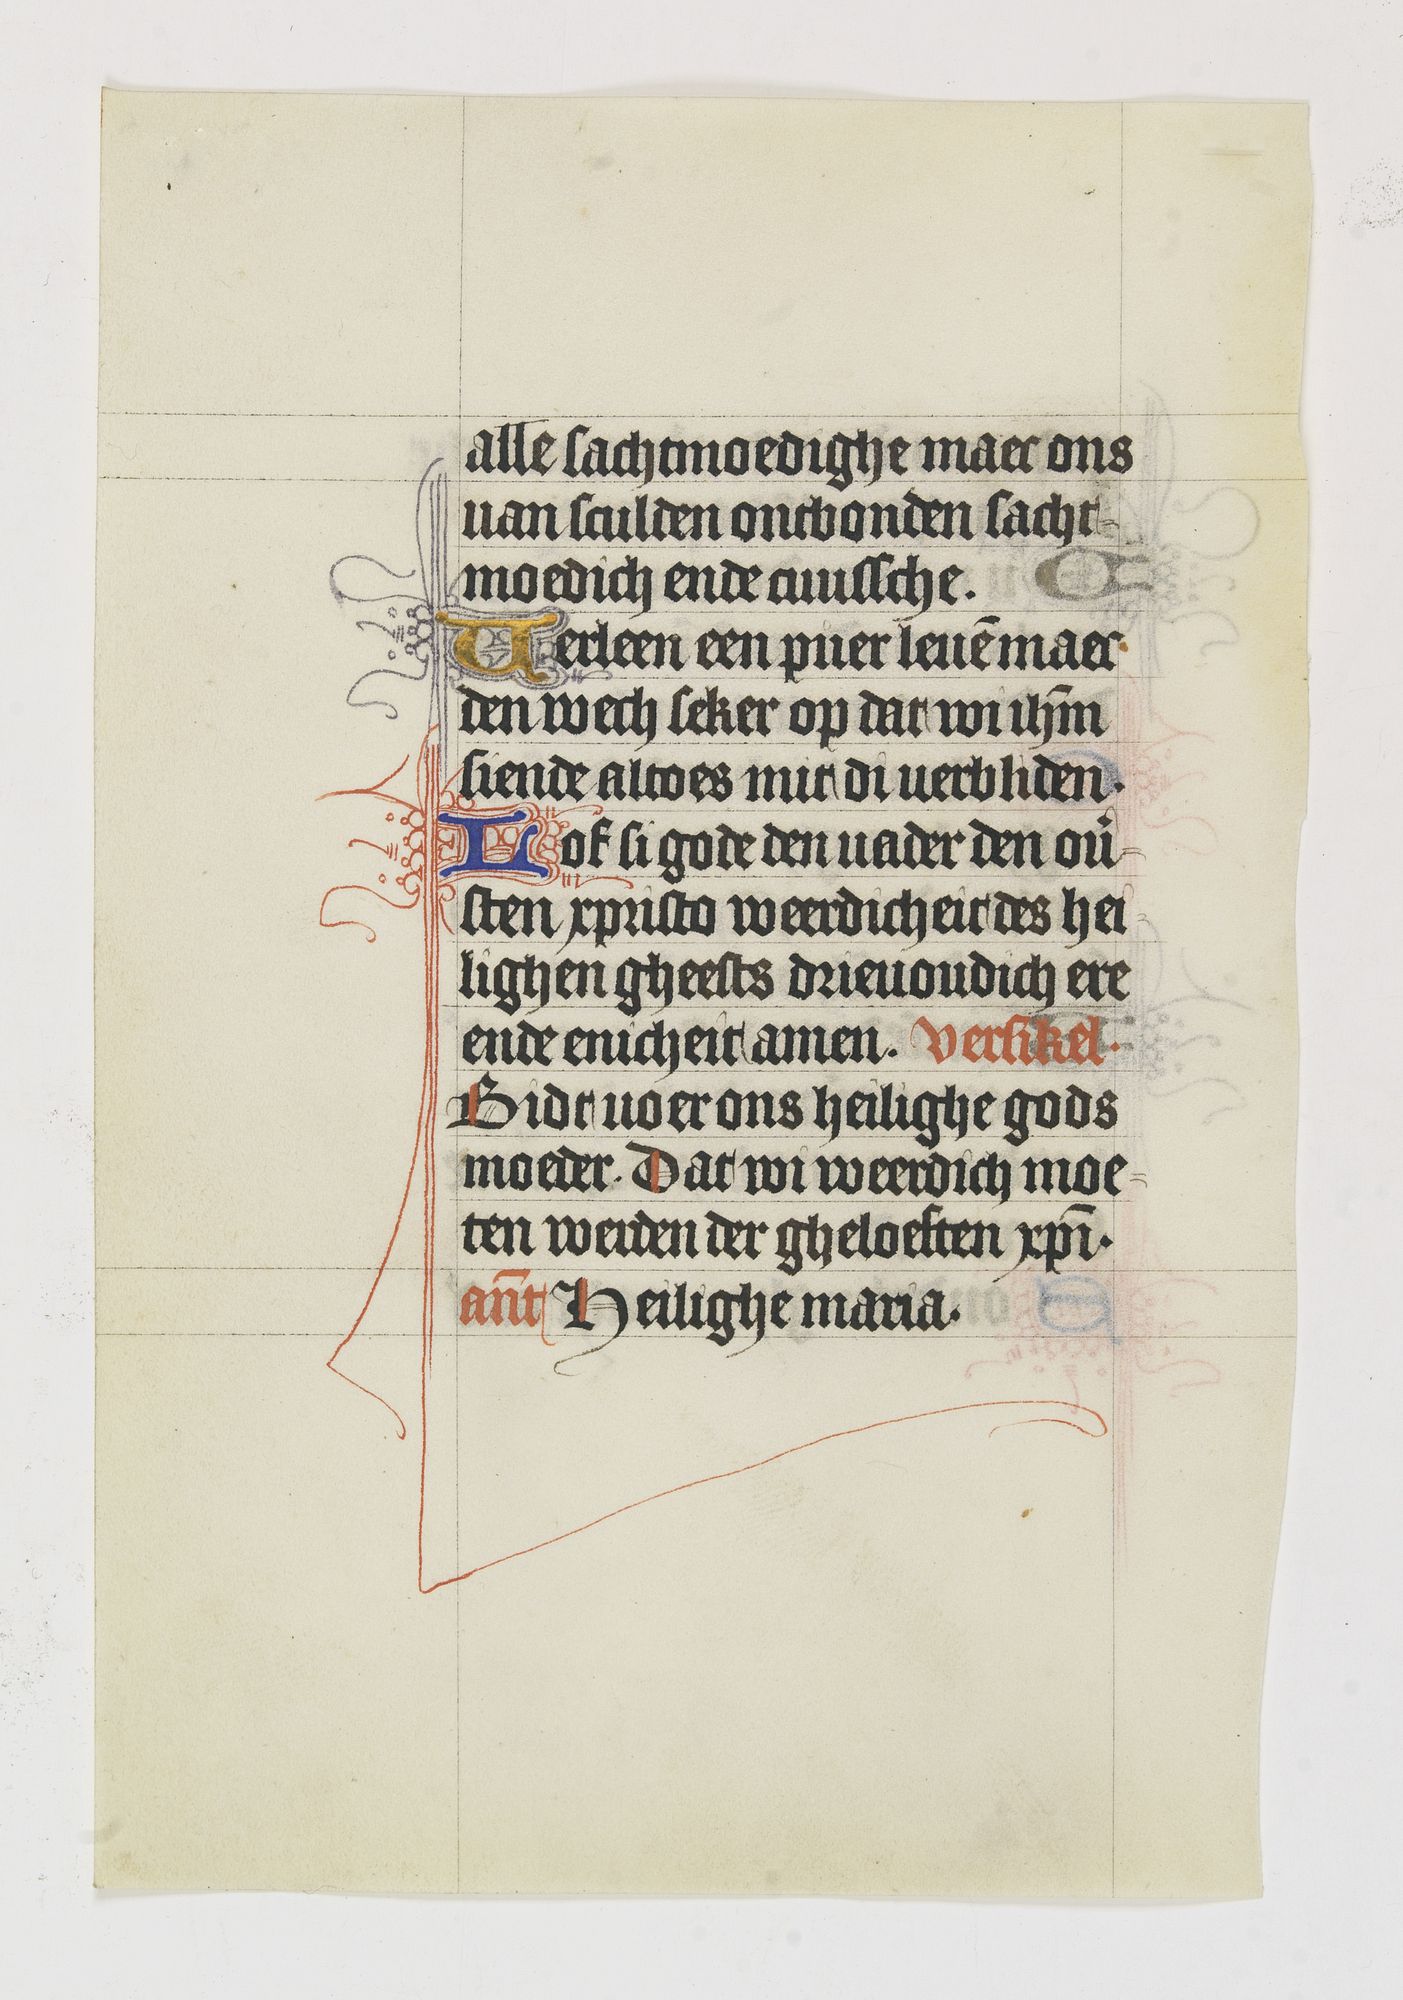 alle sachtmoedighe maec ons
uan sculden ontbonden sacht-
moedich ende cuussche.
Uerleen een puer leuē maec
den wech seker op dat wi ihm̄
siende altoes mit di uerbliden.
Lof si gode den uader den ou̓-
sten xpristo weerdicheit des hei-
lighen gheests drieuoudich ere
ende enicheit amen. Versikel.
Bidt uoer ons heilighe gods
moeder. Dat wi weerdich moe-
ten werden der gheloeften xpī.
an̄t Heilighe maria.